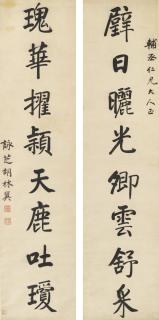 輔丞仁兄大人正
璧日曬光卿雲舒采
瑰華擢穎天鹿吐瓊
詠芝胡林翼